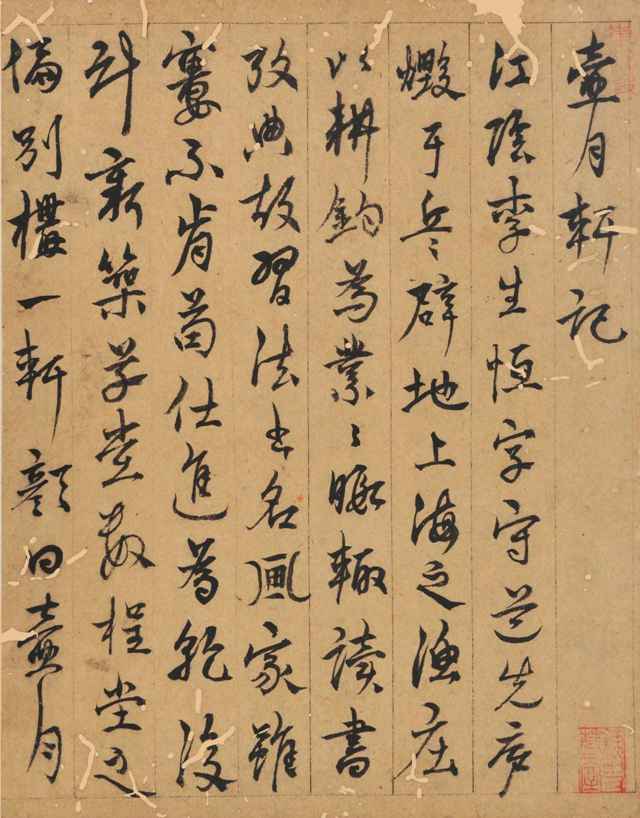 壺月軒記
江陰李生恒字守道先廬
燬于兵辟地上海之漁庄
以耕釣為業〻暇輒讀書
攷典故習法書名画家雖
窶不肯苟仕進為乾没
計新築草堂數楹堂之
偏別構一軒顏曰壺月